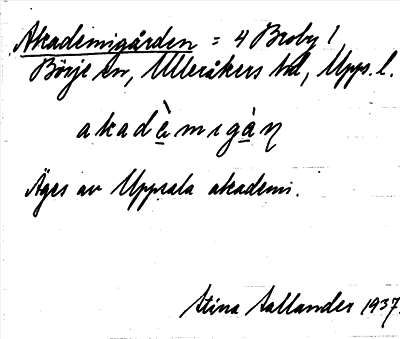 Akademigården = 4 Broby /
Börje sn, Ulleråkers hd, Upps. l.
akadèmigàṇ
Äges av Uppsala akademi.
Stina Sallander 1937.